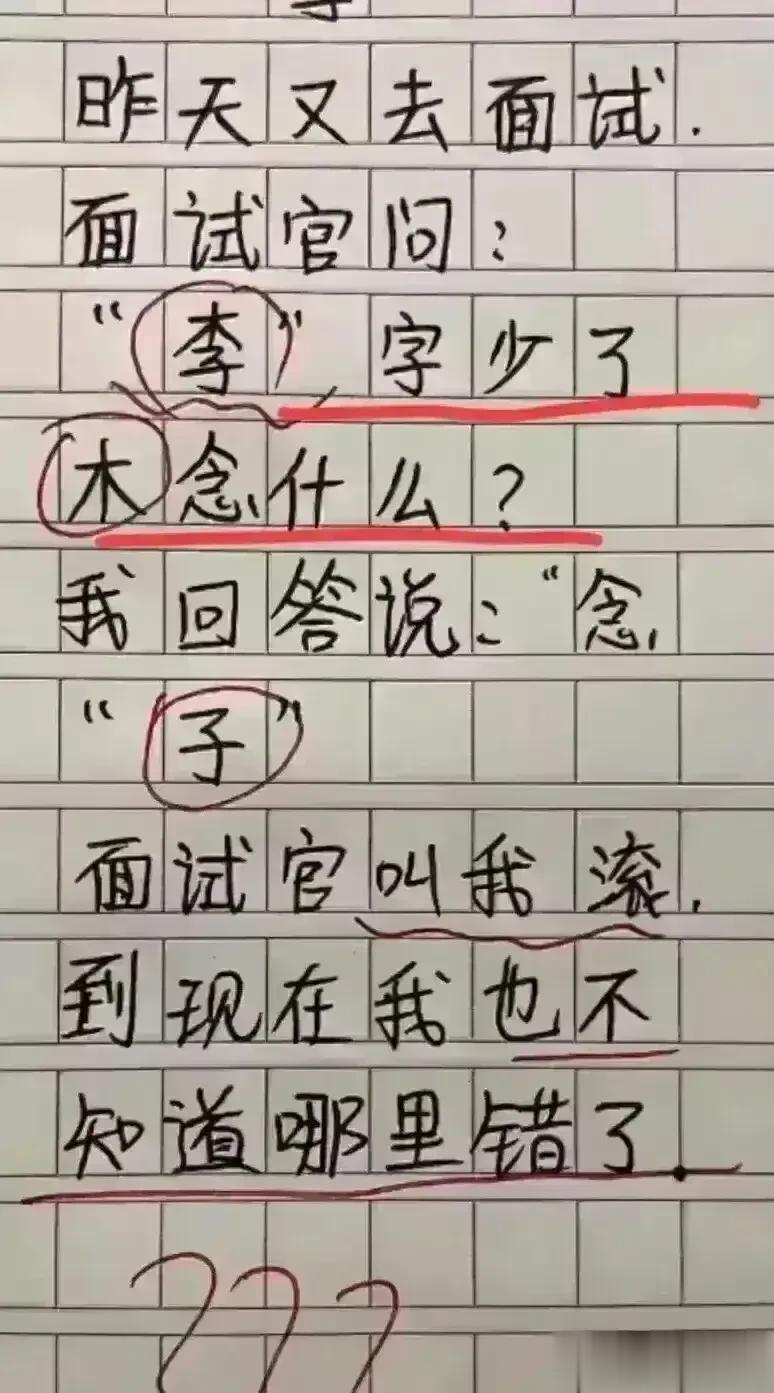 昨天又去面试.
面试官问:
“李”字少了
木念什么?
我回答说:“念
“子”
面试官叫我滚.
到现在我也不
知道哪里错了.
???